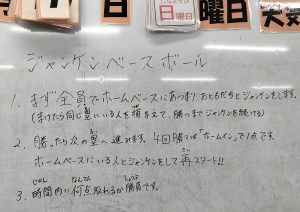 7
日
日曜日
曜日
天気
ジャンケンベースボール
1. まず全員でホームベースにあつまり、おともだちとジャンケンをします。
(まけたら同じ塁にいる人を捕まえて、勝つまでジャンケンを続ける)
るい
2. 勝ったら次の塁へ進みます。4回勝てば「ホームイン」で1点です。
ホームベースにいる人とジャンケンして再スタート!!
さい
じかん なんてん しょうぶ
3. 時間内に何点取れるか勝負です。